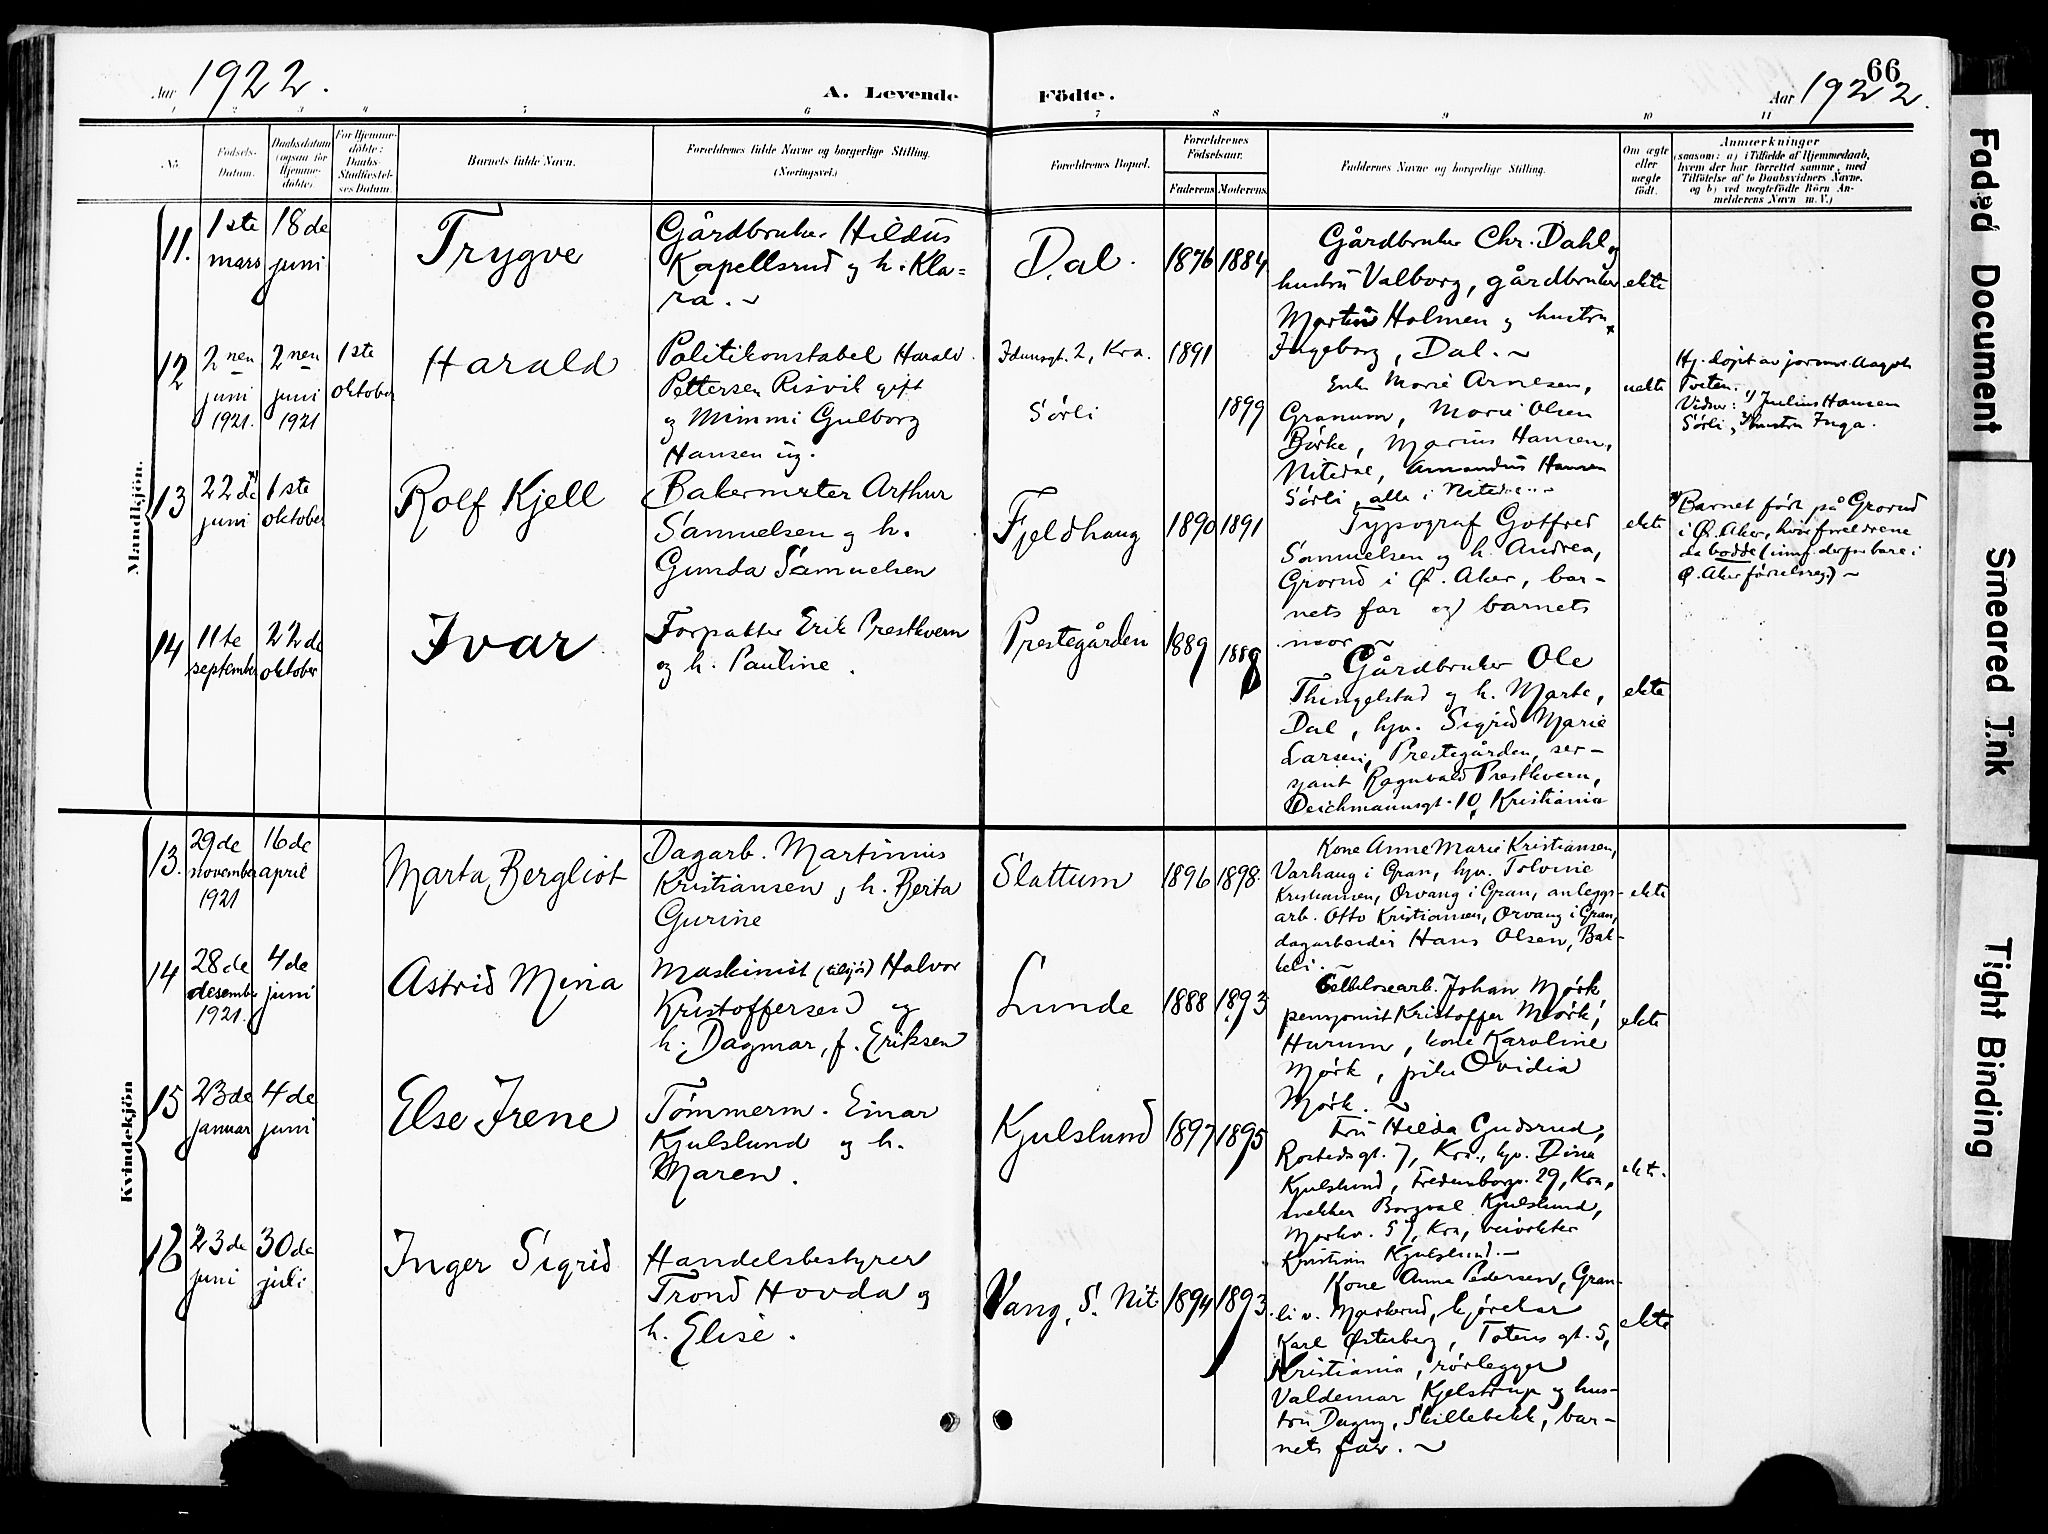 Aar 1922.
A. Levende
Födte.
66
Aar 1922.
1 2 3 4 5 6
7 8 9 10 11
No.
Fødsels-
Datum.
Daabsdatum
(ogsaa for
Hjemme-
døbte).
For Hjemme-
døbte:
Daabs-
Stadfæstel-
ses Datum.
Barnets fulde Navn.
Forældrenes fulde Navne og borgerlige Stilling.
(Næringsvei.)
Forældrenes Bopæl.
Forældrenes
Födselsaar.
Faderens Moderens
Faddernes Navne og borgerlige Stilling.
Om ægte
eller
uægte
født.
Anmærkninger
(saasom: a) i Tilfælde af Hjemmedaab,
hvem der har forrettet samme, med
Tilföielse af to Daabsvidners Navne,
og b) ved uægtefödte Börn An-
melderens Navn m. V.)
Mandkjön.
11.
1ste
mars
18de
juni
Trygve
Gårdbruker Hildus
Kapellsrud og h. Kla=
ra.
Dal.
1876 1884
Gårdbruker Chr. Dahl og
hustru Valborg, gårdbruker
Martin Holmen og hustru
Ingeborg, Dal.
ekte
12
2nen
juni
1921.
2nen
juni
1921
1ste
oktober
Harald
Politikonstabel Harald
Pettersen Risvik gift
og Mimmi Gulborg
Hansen ug.
Idunsgt. 2, Kra.
Sörli
1891
1899
Enke Marie Arnesen,
Granum, Marie Olsen
Börke, Marius Hansen,
Nitedal, Amandus Hansen
Sörli, alle i Nitedal.
uekte
Hj. döpt av jormor Aagot
Tveten.
Vidner: 1) Julius Hansen
Sörli, 2) hustru Inga.
13
22de
juni
1ste
oktober
Rolf Kjell
Bakermester Arthur
Samuelsen og h.
Gunda Samuelsen
Fjeldhaug
1890 1891
Typograf Gotfred
Samuelsen og h. Andrea,
Grorud i Ø. Aker, bar-
nets far og barnets
mor
ekte
Barnet födt på Grorud
i Ø. Aker, hvor foreldrene
da bodde
Ø. Aker
14
11te
september
22de
oktober
Ivar
Forpakter Erik Prestkvern
og h. Pauline.
Prestegården
1889 1888
Gårdbruker Ole
Thingelstad og h. Marte,
Dal, hpr. Sigrid Marie
Larsen, Prestegården, ser-
sjant Ragnvald Prestkvern,
Deichmannsgt. 10, Kristiania
ekte
Kvindekjön
13.
29de
november
1921
16de
april
Marta Bergliot
Dagarb. Martinius
Kristiansen og h. Berta
Gurine
Slattum
1896 1898
Kone Anne Marie Kristiansen,
Varhaug i Gran, hpr. Tolvine
Kristiansen, Orvang i Gran, anleggs-
arb. Otto Kristiansen, Orvang i Gran,
dagarbeider Hans Olsen, Bak-
keli.
ekte
14
28de
desember
1921.
4de
juni
Astrid Mina
Maskinist Halvor
Kristoffersen og
h. Dagmar, f. Eriksen
Lunde
1888 1893
Cellulosearb. Johan Mørk
pensjonist Kristoffer Mørk,
Hurum, kone Karoline
Mørk, pike Ovidia
Mørk.
ekte
15
23de
januar
4de
juni
Else Irene
Tömmerm. Einar
Kjulslund og h.
Maren.
Kjulslund
1897 1895
Fru Hilda Gudsrud,
Rostedsgt. 7, Kra., hpr. Dina
Kjulslund, Fredensborgv. 29, Kra.,
snekker Borgval Kjulslund,
Morkv. 57, Kra, veivokter
Kristian Kjulslund.
ekte
16
23de
juni
30de
juli
Inger Sigrid
Handelsbestyrer
Trond Hovda og
h. Elise.
Vang, S. Nit
1894 1893
Kone Anna Pedersen, Gran-
li v. Markerud, kjörekar
Karl Østerberg, Totens gt. 5,
Kristiania, rörlegger
Valdemar Kjelstrup og hus-
tru Dagny, Skillebekk, bar-
nets far.
ekte
Faded Document
Smeared Ink
Tight Binding